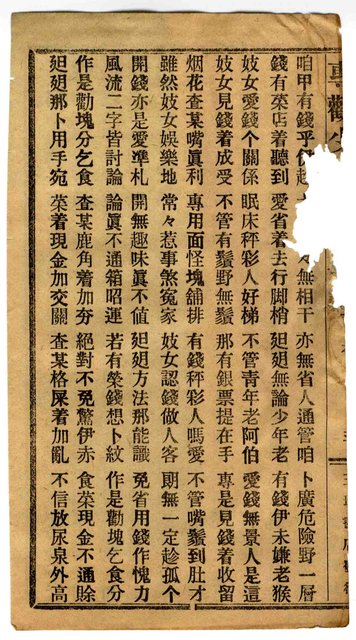 專勸少
咱甲有錢乎 無相干 亦無省人通管咱 卜廣危險野一層
錢有榮店着聽到 愛省着去行脚梢 廽廽無論少年老 有錢伊未嫌老猴
妓女愛錢个關係 眠床秤彩人好梯 不管青年老阿伯 有錢無景人是這
妓女見錢着成受 不管有鬚野無鬚 那有銀票提在手 專是見錢着收留
烟花查某嘴眞利 專用面怪塊舖排 有錢秤彩人嗎愛 不管嘴鬚到肚才
雖然妓女娛樂地 常々惹事煞冤家 妓女認錢做人客 朗無一定趁孤个
開錢亦是愛準札 開無趣味眞不値 廽廽方法那能識 免省用錢作愧力
風流二字皆討論 論眞不通箱昭運 若有榮錢想卜紋 作是勸塊乞食分
作是勸塊分乞食 查某鹿角着加夯 絕對不免驚伊赤 食菜現金不通賒
廽廽那卜用手宛 菜着現金加交關 查某格屎着加亂 不信放尿泉外高